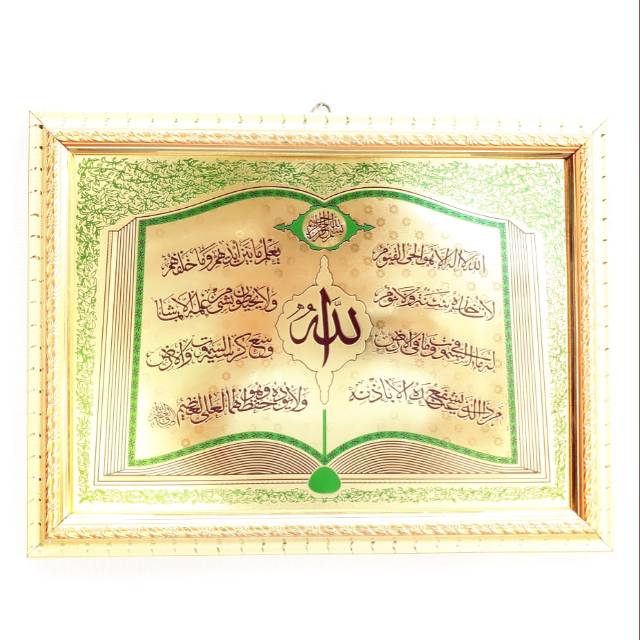 بسم الله الرحمن الرحيم
الله
الله لا إله إلا هو الحي القيوم
لا تأخذه سنة ولا نوم
له ما في السموات وما في الأرض
من ذا الذي يشفع عنده إلا بإذنه
يعلم ما بين أيديهم وما خلفهم
ولا يحيطون بشيء من علمه إلا بما شاء
وسع كرسيه السموات والأرض
ولا يؤده حفظهما وهو العلي العظيم